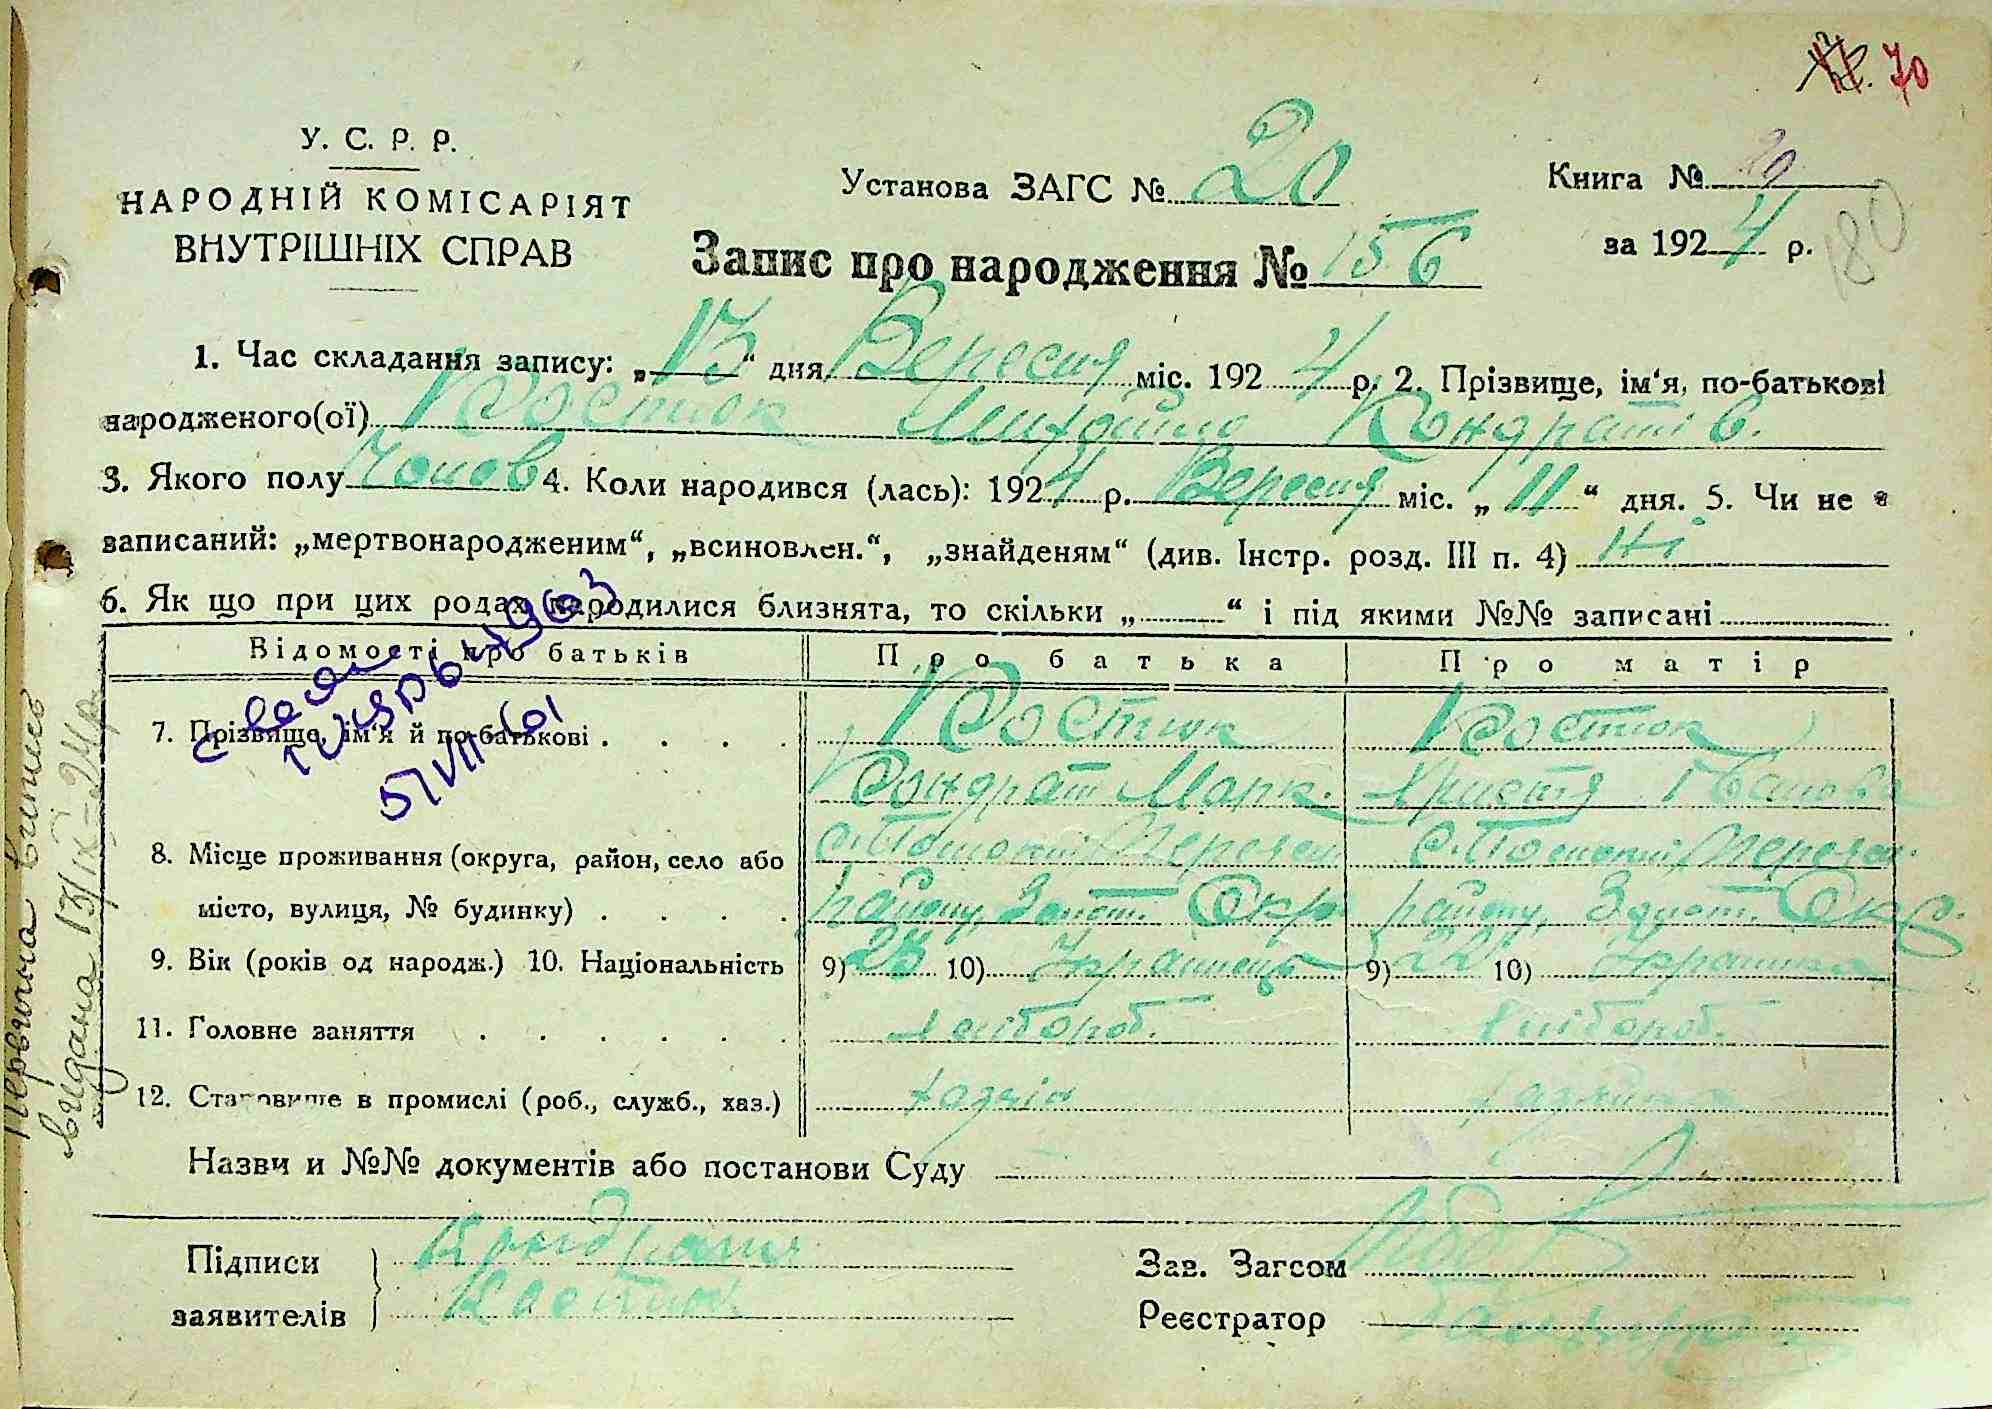 70
У. С. Р. Р.
НАРОДНІЙ КОМІСАРІЯТ
ВНУТРІШНІХ СПРАВ
Установа ЗАГС № 20
Книга № 20
за 1924 р.
180
Запис про народження № 156
1. Час складання запису: „13“ дня Вересня міс. 1924 р. 2. Прізвище, ім‘я, по-батькові
народженого(ої) Костюк Михайло Кондратів.
3. Якого полу Чолов 4. Коли народився (лась): 1924 р. Вересня міс. „11“ дня. 5. Чи не є
записаний: „мертвонародженим“, „всиновлен.“, „знайденям“ (див. Інстр. розд. III п. 4) Ні
6. Як що при цих родах народилися близнята, то скільки „ “ і під якими №№ записані
Відомости про батьків Про батька Про матір
7. Прізвище, ім‘я й по-батькові . . . . Костюк Костюк
Кондрат Марк. Христя Іванова
8. Місце проживання (округа, район, село або
місто, вулиця, № будинку) . . . . району, Окр району, Окр.
9. Вік (років од народж.) 10. Національність 9) 28 10) Українець 9) 22 10) Українка
11. Головне заняття . . . . . . Хлібороб. Хлібороб.
12. Становище в промислі (роб., служб., хаз.) хазяін
Назви и №№ документів або постанови Суду
Підписи
заявителів
Кондрат
Костюк
Зав. Загсом
Реєстратор
Первична випись
видана 13/IX-24р
5/VII-61